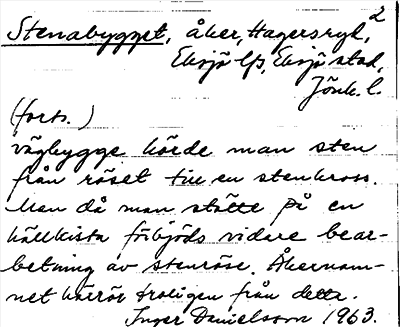 2
Stenabygget, åker, Hagersryd,
Eksjö lfs, Eksjö stad,
Jönk. l.
(forts.)
vägbygge körde man sten
från röset till en stenkross.
Men då man stötte på en
hällkista förbjöds vidare bear-
betning av stenröse. Åkernam-
net härrör troligen från detta.
Inger Danielsson 1963.